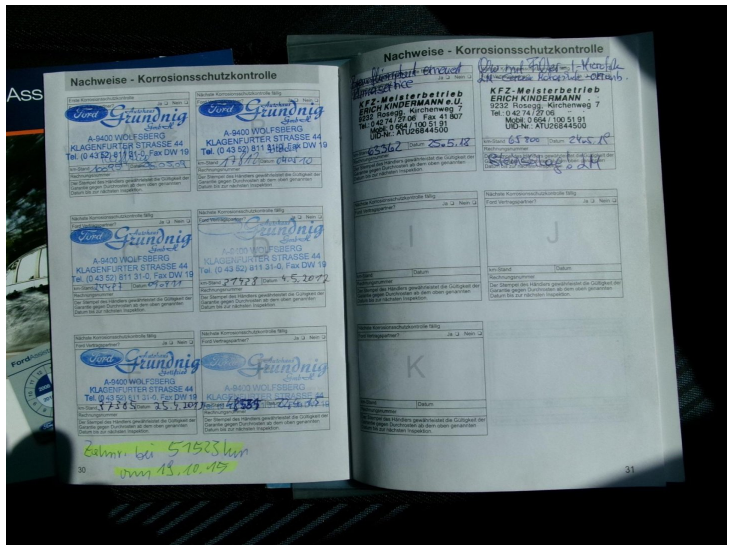 Ass
FordAssis
Nachweise - Korrosionsschutzkontrolle
Erste Korrosionsschutzkontrolle
Ja Nein
Ford
Autohaus
Grundnig
GmbH
A-9400 WOLFSBERG
KLAGENFURTER STRASSE 44
Tel. (0 43 52) 811 31-0, Fax DW 19
km-Stand
Rechnungsnummer
Der Stempel des Händlers gewährleistet die Gültigkeit der
Garantie gegen Durchrosten ab dem oben genannten
Datum bis zur nächsten Inspektion.
Nächste Korrosionsschutzkontrolle fällig
Ja Nein
Ford
Grundnig
GmbH
A-9400 WOLFSBERG
KLAGENFURTER STRASSE 44
Tel. (0 43 52) 811 31-0, Fax DW 19
km-Stand Datum
Rechnungsnummer
Der Stempel des Händlers gewährleistet die Gültigkeit der
Garantie gegen Durchrosten ab dem oben genannten
Datum bis zur nächsten Inspektion.
Nächste Korrosionsschutzkontrolle fällig
Ford Vertragspartner? Ja Nein
Ford
Grundnig
A-9400 WOLFSBERG
KLAGENFURTER STRASSE 44
Tel. (0 43 52) 811 31-0, Fax DW 19
km-Stand Datum
Rechnungsnummer
Der Stempel des Händlers gewährleistet die Gültigkeit der
Garantie gegen Durchrosten ab dem oben genannten
Datum bis zur nächsten Inspektion.
Nächste Korrosionsschutzkontrolle fällig
Ford Vertragspartner? Ja Nein
Ford
Grundnig
A-9400 WOLFSBERG
KLAGENFURTER STRASSE 44
Tel. (0 43 52) 811 31-0, Fax DW 19
km-Stand 27428 Datum 4.5.2012
Rechnungsnummer
Der Stempel des Händlers gewährleistet die Gültigkeit der
Garantie gegen Durchrosten ab dem oben genannten
Datum bis zur nächsten Inspektion.
Nächste Korrosionsschutzkontrolle fällig
Ford Vertragspartner? Ja Nein
Ford
Autohaus
Grundnig
A-9400 WOLFSBERG
KLAGENFURTER STRASSE 44
Tel. (0 43 52) 811 31-0, Fax DW 19
km-Stand 37365 Datum
Rechnungsnummer
Der Stempel des Händlers gewährleistet die Gültigkeit der
Garantie gegen Durchrosten ab dem oben genannten
Datum bis zur nächsten Inspektion.
Nächste Korrosionsschutzkontrolle fällig
Ford Vertragspartner? Ja Nein
Ford
Grundnig
A-9400 WOLFSBERG
KLAGENFURTER STRASSE 44
Tel. (0 43 52) 811 31-0, Fax DW 19
Rechnungsnummer
Der Stempel des Händlers gewährleistet die Gültigkeit der
Garantie gegen Durchrosten ab dem oben genannten
Datum bis zur nächsten Inspektion.
Zahnr. bei 51523 km
vom 19.10.15
30
Nachweise - Korrosionsschutzkontrolle
KFZ-Meisterbetrieb
ERICH KINDERMANN e.U.
9232 Rosegg, Kirchenweg 7
Tel.: 0 42 74 / 27 06 Fax 41 807
Mobil: 0 664 / 100 51 91
UID-Nr.: ATU26844500
63362 Datum 25.5.18
Rechnungsnummer
Der Stempel des Händlers gewährleistet die Gültigkeit der
Garantie gegen Durchrosten ab dem oben genannten
Datum bis zur nächsten Inspektion.
KFZ-Meisterbetrieb
ERICH KINDERMANN
9232 Rosegg, Kirchenweg 7
Tel.: 0 42 74 / 27 06
Mobil: 0 664 / 100 51 91
UID-Nr.: ATU26844500
km-Stand Datum
Nächste Korrosionsschutzkontrolle fällig
Ford Vertragspartner? Ja Nein
I
km-Stand Datum
Rechnungsnummer
Der Stempel des Händlers gewährleistet die Gültigkeit der
Garantie gegen Durchrosten ab dem oben genannten
Datum bis zur nächsten Inspektion.
Nächste Korrosionsschutzkontrolle fällig
Ford Vertragspartner? Ja Nein
J
km-Stand Datum
Rechnungsnummer
Der Stempel des Händlers gewährleistet die Gültigkeit der
Garantie gegen Durchrosten ab dem oben genannten
Datum bis zur nächsten Inspektion.
Nächste Korrosionsschutzkontrolle fällig
Ford Vertragspartner? Ja Nein
K
km-Stand Datum
Rechnungsnummer
Der Stempel des Händlers gewährleistet die Gültigkeit der
Garantie gegen Durchrosten ab dem oben genannten
Datum bis zur nächsten Inspektion.
31